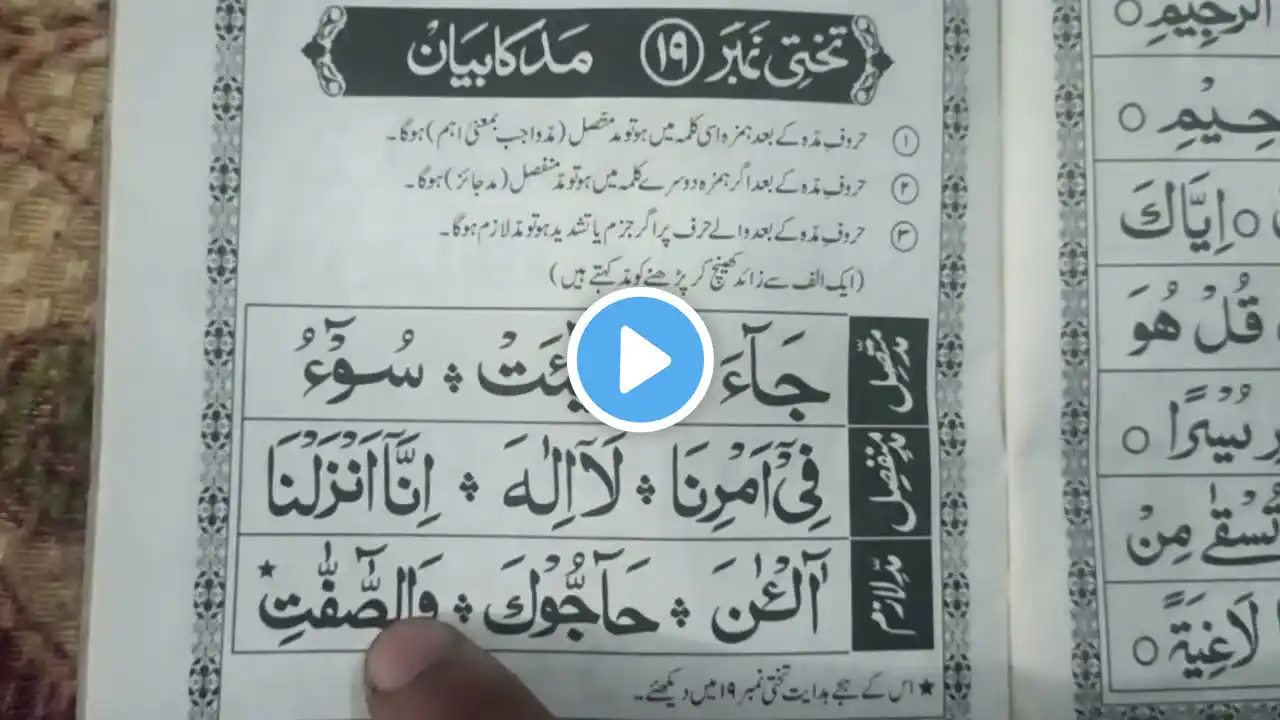 تختی نمبر ۱۹ مد کا بیان
۱ حروفِ مدّہ کے بعد ہمزہ اسی کلمہ میں ہو تو مد متصل (مدّ واجب بمعنیٰ اہم) ہوگا۔
۲ حروفِ مدّہ کے بعد اگر ہمزہ دوسرے کلمہ میں ہو تو مدّ منفصل (مد جائز) ہوگا۔
۳ حروفِ مدّہ کے بعد والے حرف پر اگر جزم یا تشدید ہو تو مدّ لازم ہوگا۔
(ایک الف سے زائد کھینچ کر پڑھنے کو مد کہتے ہیں)
مدِّ متّصِل جَآءَ سُوْٓءُ
مدِّ منفصِل فِیْٓ اَمْرِنَا لَآ اِلٰهَ اِنَّآ اَنْزَلْنَا
مدِّ لازم آٰلْـٰٔنَ حَآجُّوْكَ وَالصّٰٓفّٰتِ ★
★ اس کے ہجے ہدایت تختی نمبر ۱۹ میں دیکھئے۔
الرَّجِيْمِ ○
○
○ اِيَّاكَ
قُلْ هُوَ
يُسْرًا ○
تُسْقٰى مِنْ
لَاغِيَةً ○